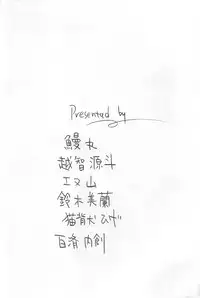 Presented by
鰻丸
越智源斗
エヌ山
鈴木美蘭
猫背犬ひげ
百済内創